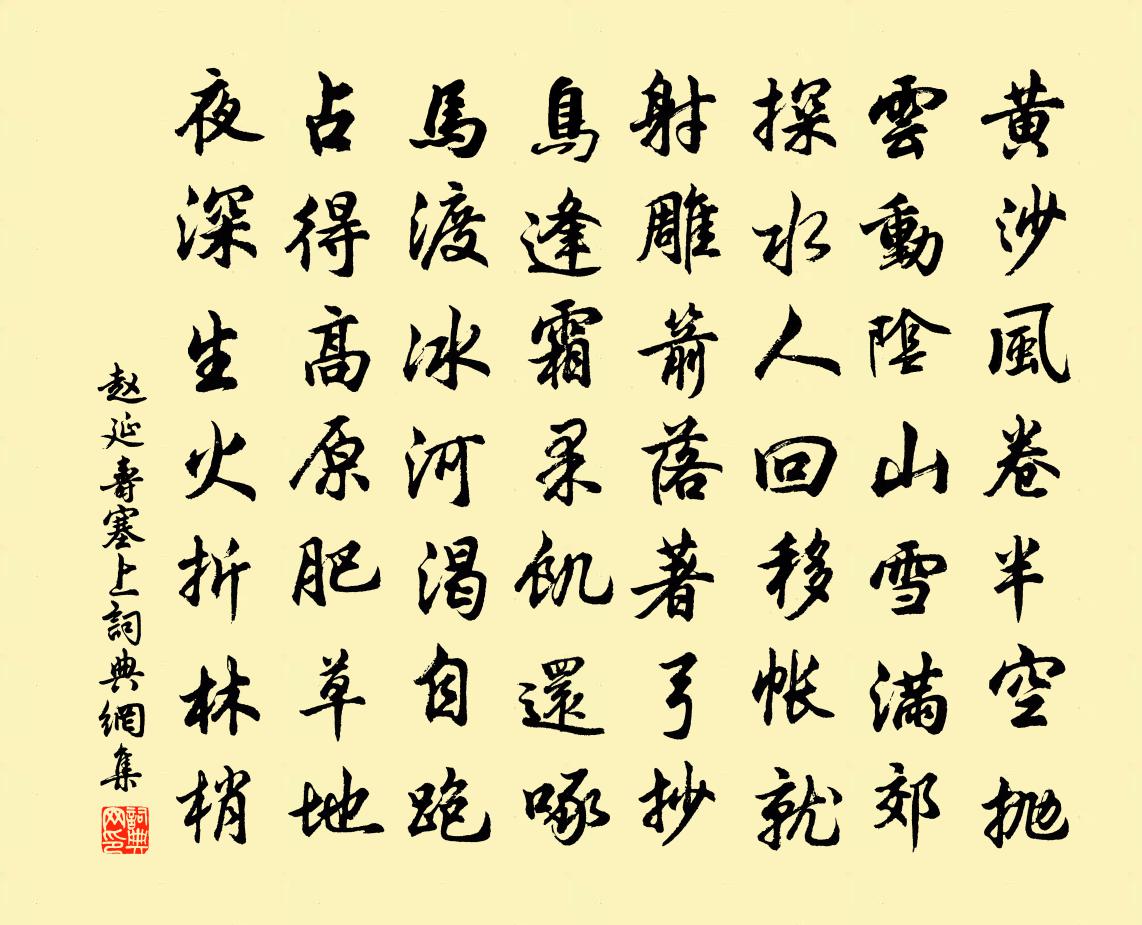 黄沙風卷半空抛
雲動陰山雪滿郊
探水人回移帳就
射雕箭落著弓抄
鳥逢霜果飢還啄
馬渡冰河渴自跑
占得高原肥草地
夜深生火折林梢
赵延壽塞上詞典網集
詞典网印